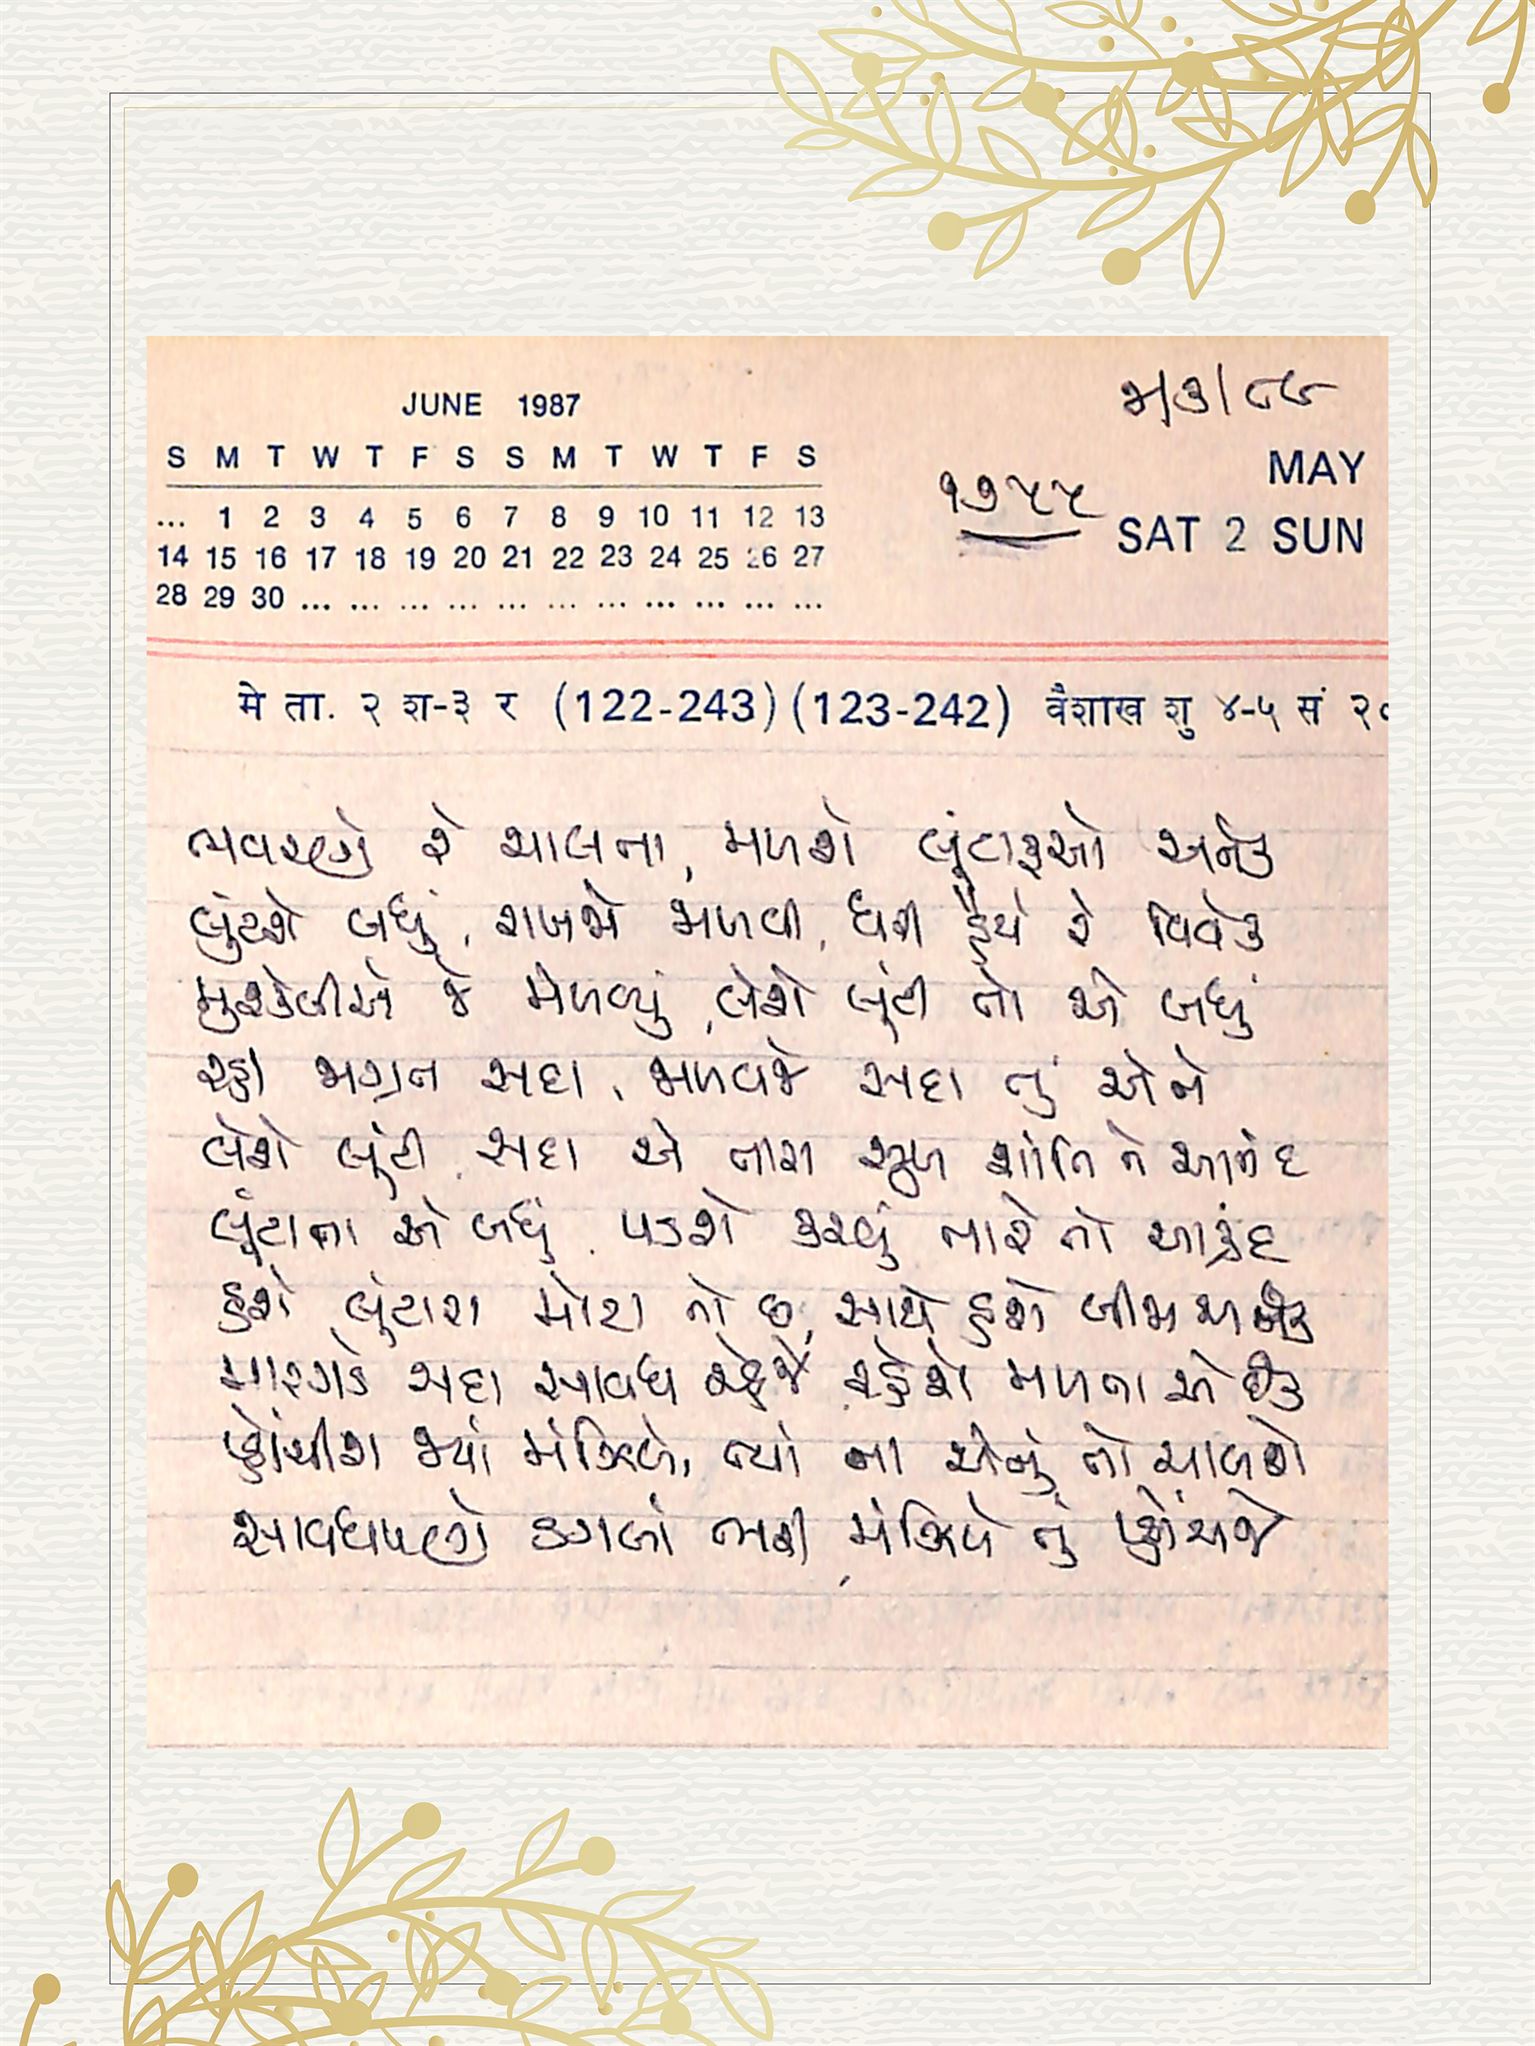 JUNE 1987
S M T W T F S S M T W T F S
... 1 2 3 4 5 6 7 8 9 10 11 12 13
14 15 16 17 18 19 20 21 22 23 24 25 26 27
28 29 30 ... ... ... ... ... ... ... ... ... ... ...
૧૭૫૫
MAY
SAT 2 SUN
मे ता. २ श-३ र (122-243) (123-242) वैशाख शु ४-५ सं २०
ભવરણે રે ચાલતા, મળશે લૂંટારુઓ અનેક
લુંટશે બધું, રાખજે જાળવી, ધરી હૈયે રે વિવેક
મુશ્કેલીએ જે મેળવ્યું, લેશે લૂંટી તો એ બધું
રહી જાગ્રત સદા, જાળવજે સદા તું એને
લેશે લૂંટી સદા એ તારા સુખ શાંતિ ને આનંદ
લૂંટાતા એ બધું, પડશે કરવું તારે તો આક્રંદ
હશે લુંટારા મોટા તો છ, સાથે હશે બીજા અનેક
સદા સાવધ રહેજે, રહેશે મળતા એ છેક
પ્હોંચીશ જ્યાં મંઝિલે, ત્યાં ના એનું તો ચાલશે
સાવધપણે ડગલાં ભરી, મંઝિલે તું પ્હોંચજે